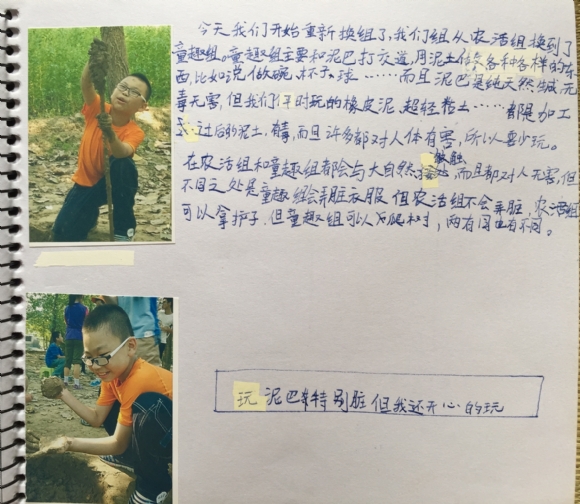 今天我们开始重新换组了，我们组从农活组换到了
童趣组。童趣组主要和泥巴打交道，用泥土做各种各样的东
西，比如说做碗、杯子、球……而且泥巴是纯天然，无
毒无害，但我们平时玩的橡皮泥、超轻粘土……都是加工
过后的泥土，有毒，而且许多都对人体有害，所以要少玩。
在农活组和童趣组都会与大自然接触，而且都对人无害，但
不同之处是童趣组会弄脏衣服，但农活组不会弄脏，农活组
可以拿护子，但童趣组可以爬树，两有同也有不同。
玩泥巴特别脏但我还开心的玩